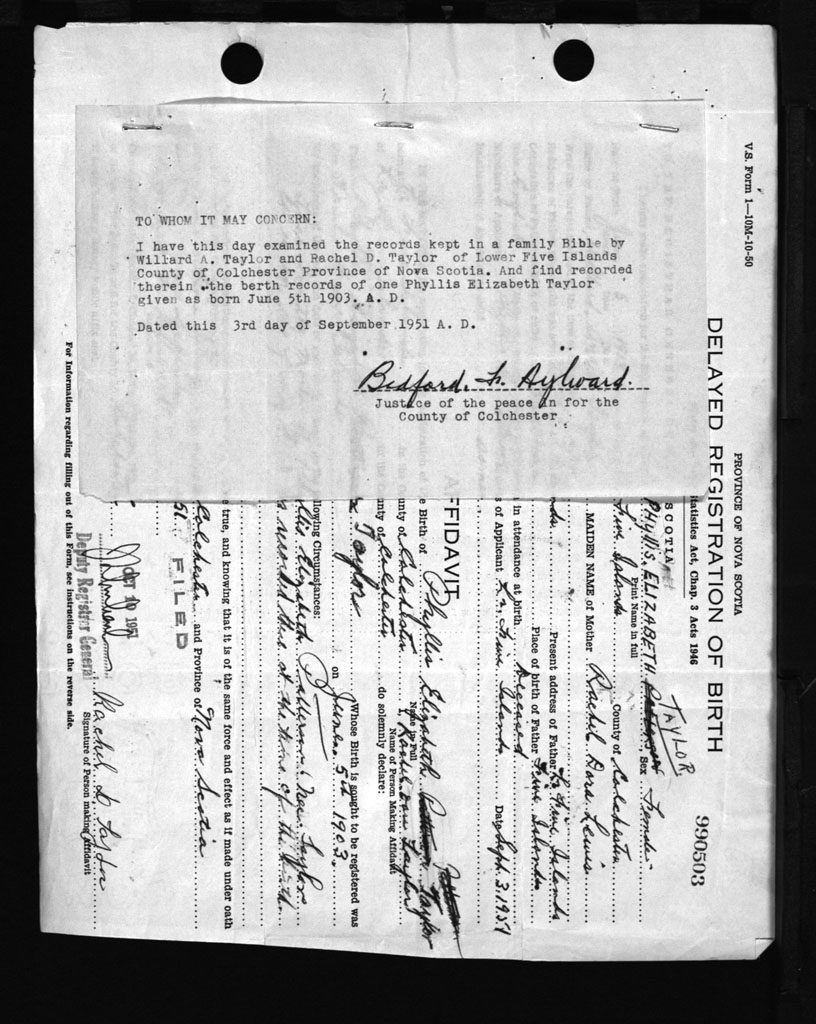 TO WHOM IT MAY CONCERN:
I have this day examined the records kept in a family Bible by
Willard A. Taylor and Rachel D. Taylor of Lower Five Islands
County of Colchester Province of Nova Scotia. And find recorded
therein the berth records of one Phyllis Elizabeth Taylor
given as born June 5th 1903. A. D.
Dated this 3rd day of September 1951 A. D.
Bedford. L. Aylward.
Justice of the peace in for the
County of Colchester
V.S. Form 1—10M-10-50
PROVINCE OF NOVA SCOTIA
DELAYED REGISTRATION OF BIRTH
990503
Statistics Act, Chap. 3 Acts 1946
SCOTIA
TAYLOR
Phyllis, ELIZABETH Sex Female
Print Name in full
Five Islands County of Colchester
MAIDEN NAME of Mother Rachel Dora Lewis
Present address of Father Lr Five Islands
Place of birth of Father Five Islands
in attendance at birth Deceased
s of Applicant Lr Five Islands Date Sept. 3, 1951
AFFIDAVIT
e Birth of Phyllis Elizabeth Taylor
Name in Full
County of Colchester I, Rachel Taylor
Name of Person Making Affidavit
County of Colchester do solemnly declare:
Taylor
Whose Birth is sought to be registered was
on June 5th 1903.
llowing Circumstances:
llis Elizabeth Patterson (Nee Taylor)
s recorded there at the time of the birth
e true, and knowing that it is of the same force and effect as if made under oath
Colchester and Province of Nova Scotia
51
FILED
OCT 10 1951
Deputy Registrar General
Rachel D. Taylor
Signature of Person making Affidavit
For Information regarding filling out of this Form, see instructions on the reverse side.